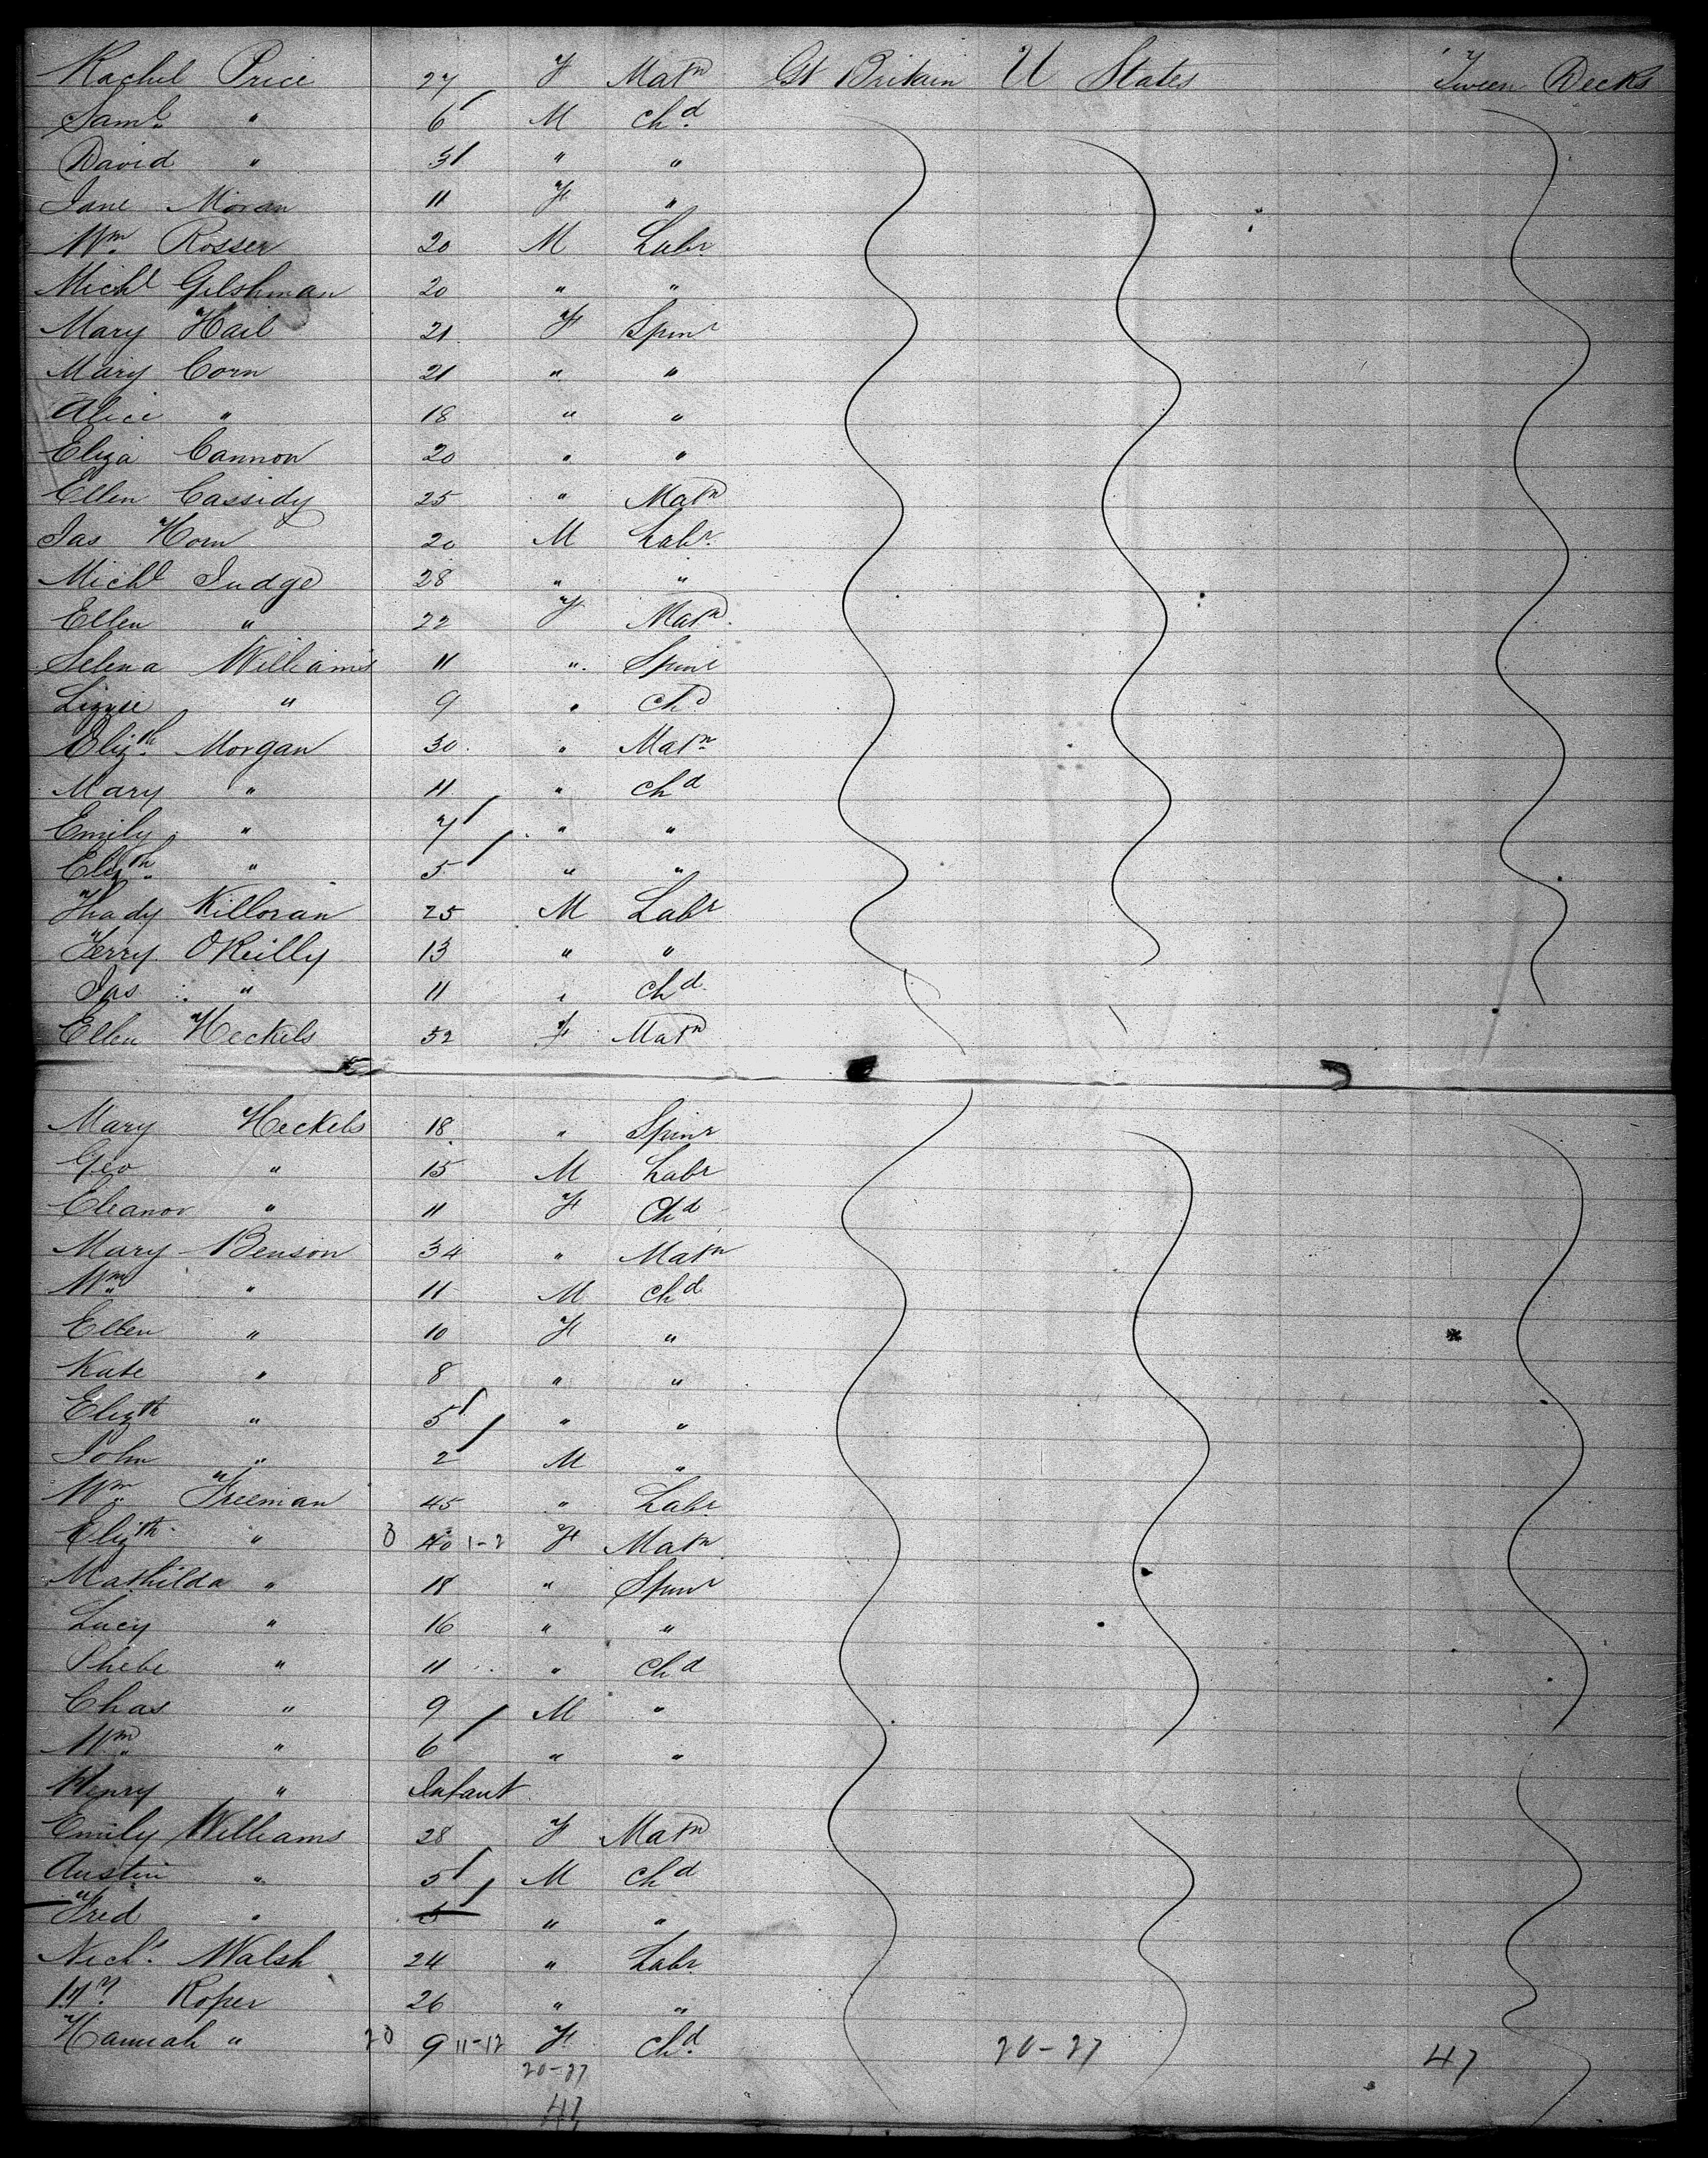 Rachel Price 27 F Matn Gt Britain U States Tween Decks
Saml " 6 M Chd
David " 3 " "
Jane Moran 11 F "
Wm Rosser 20 M Labr
Michl Gilshman 20 " "
Mary Hail 21 F Spinr
Mary Corn 21 " "
Alice " 18 " "
Eliza Cannon 20 " "
Ellen Cassidy 25 " Matn
Jas Horn 20 M Labr
Michl Judge 28 " "
Ellen " 22 F Matn
Selena Williams 11 " Spinr
Lizzie " 9 " Chd
Elizth Morgan 30 " Matn
Mary " 11 " Chd
Emily " 7 " "
Elizth " 5 " "
Thady Killoran 25 M Labr
Terry OReilly 13 " "
Jas " 11 " Chd
Ellen Heckels 52 F Matn
Mary Heckels 18 " Spinr
Geo " 15 M Labr
Eleanor " 11 F Chd
Mary Benson 34 " Matn
Wm " 11 M Chd
Ellen " 10 F "
Kate " 8 " "
Elizth " 5 " "
John " 2 M "
Wm Freeman 45 " Labr
Elizth " 40 1-2 F Matn
Mathilda " 18 " Spinr
Lucy " 16 " "
Phebe " 11 " Chd
Chas " 9 M "
Wm " 6 " "
Henry " Infant
Emily Williams 28 F Matn
Austin " 5 M Chd
Fred " " "
Nichs Walsh 24 " Labr
Roper 26 " "
Hannah " 9 11-12 F Chd 20-27 47
20-27
47